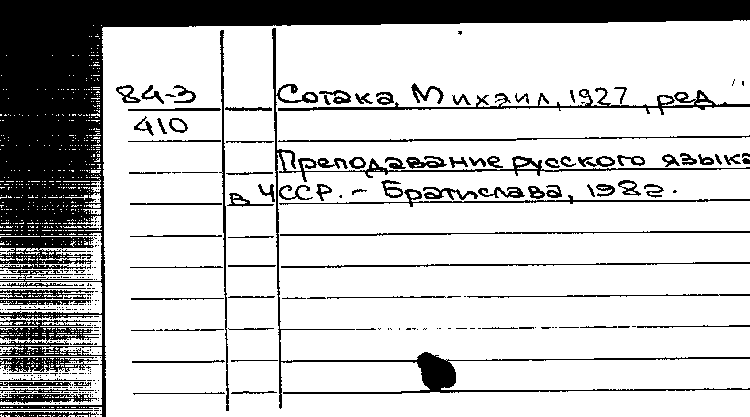 84-3 Сотака, Михаил, 1927, ред."
410
Преподавание русского языка
в ЧССР. - Братислава, 1982.